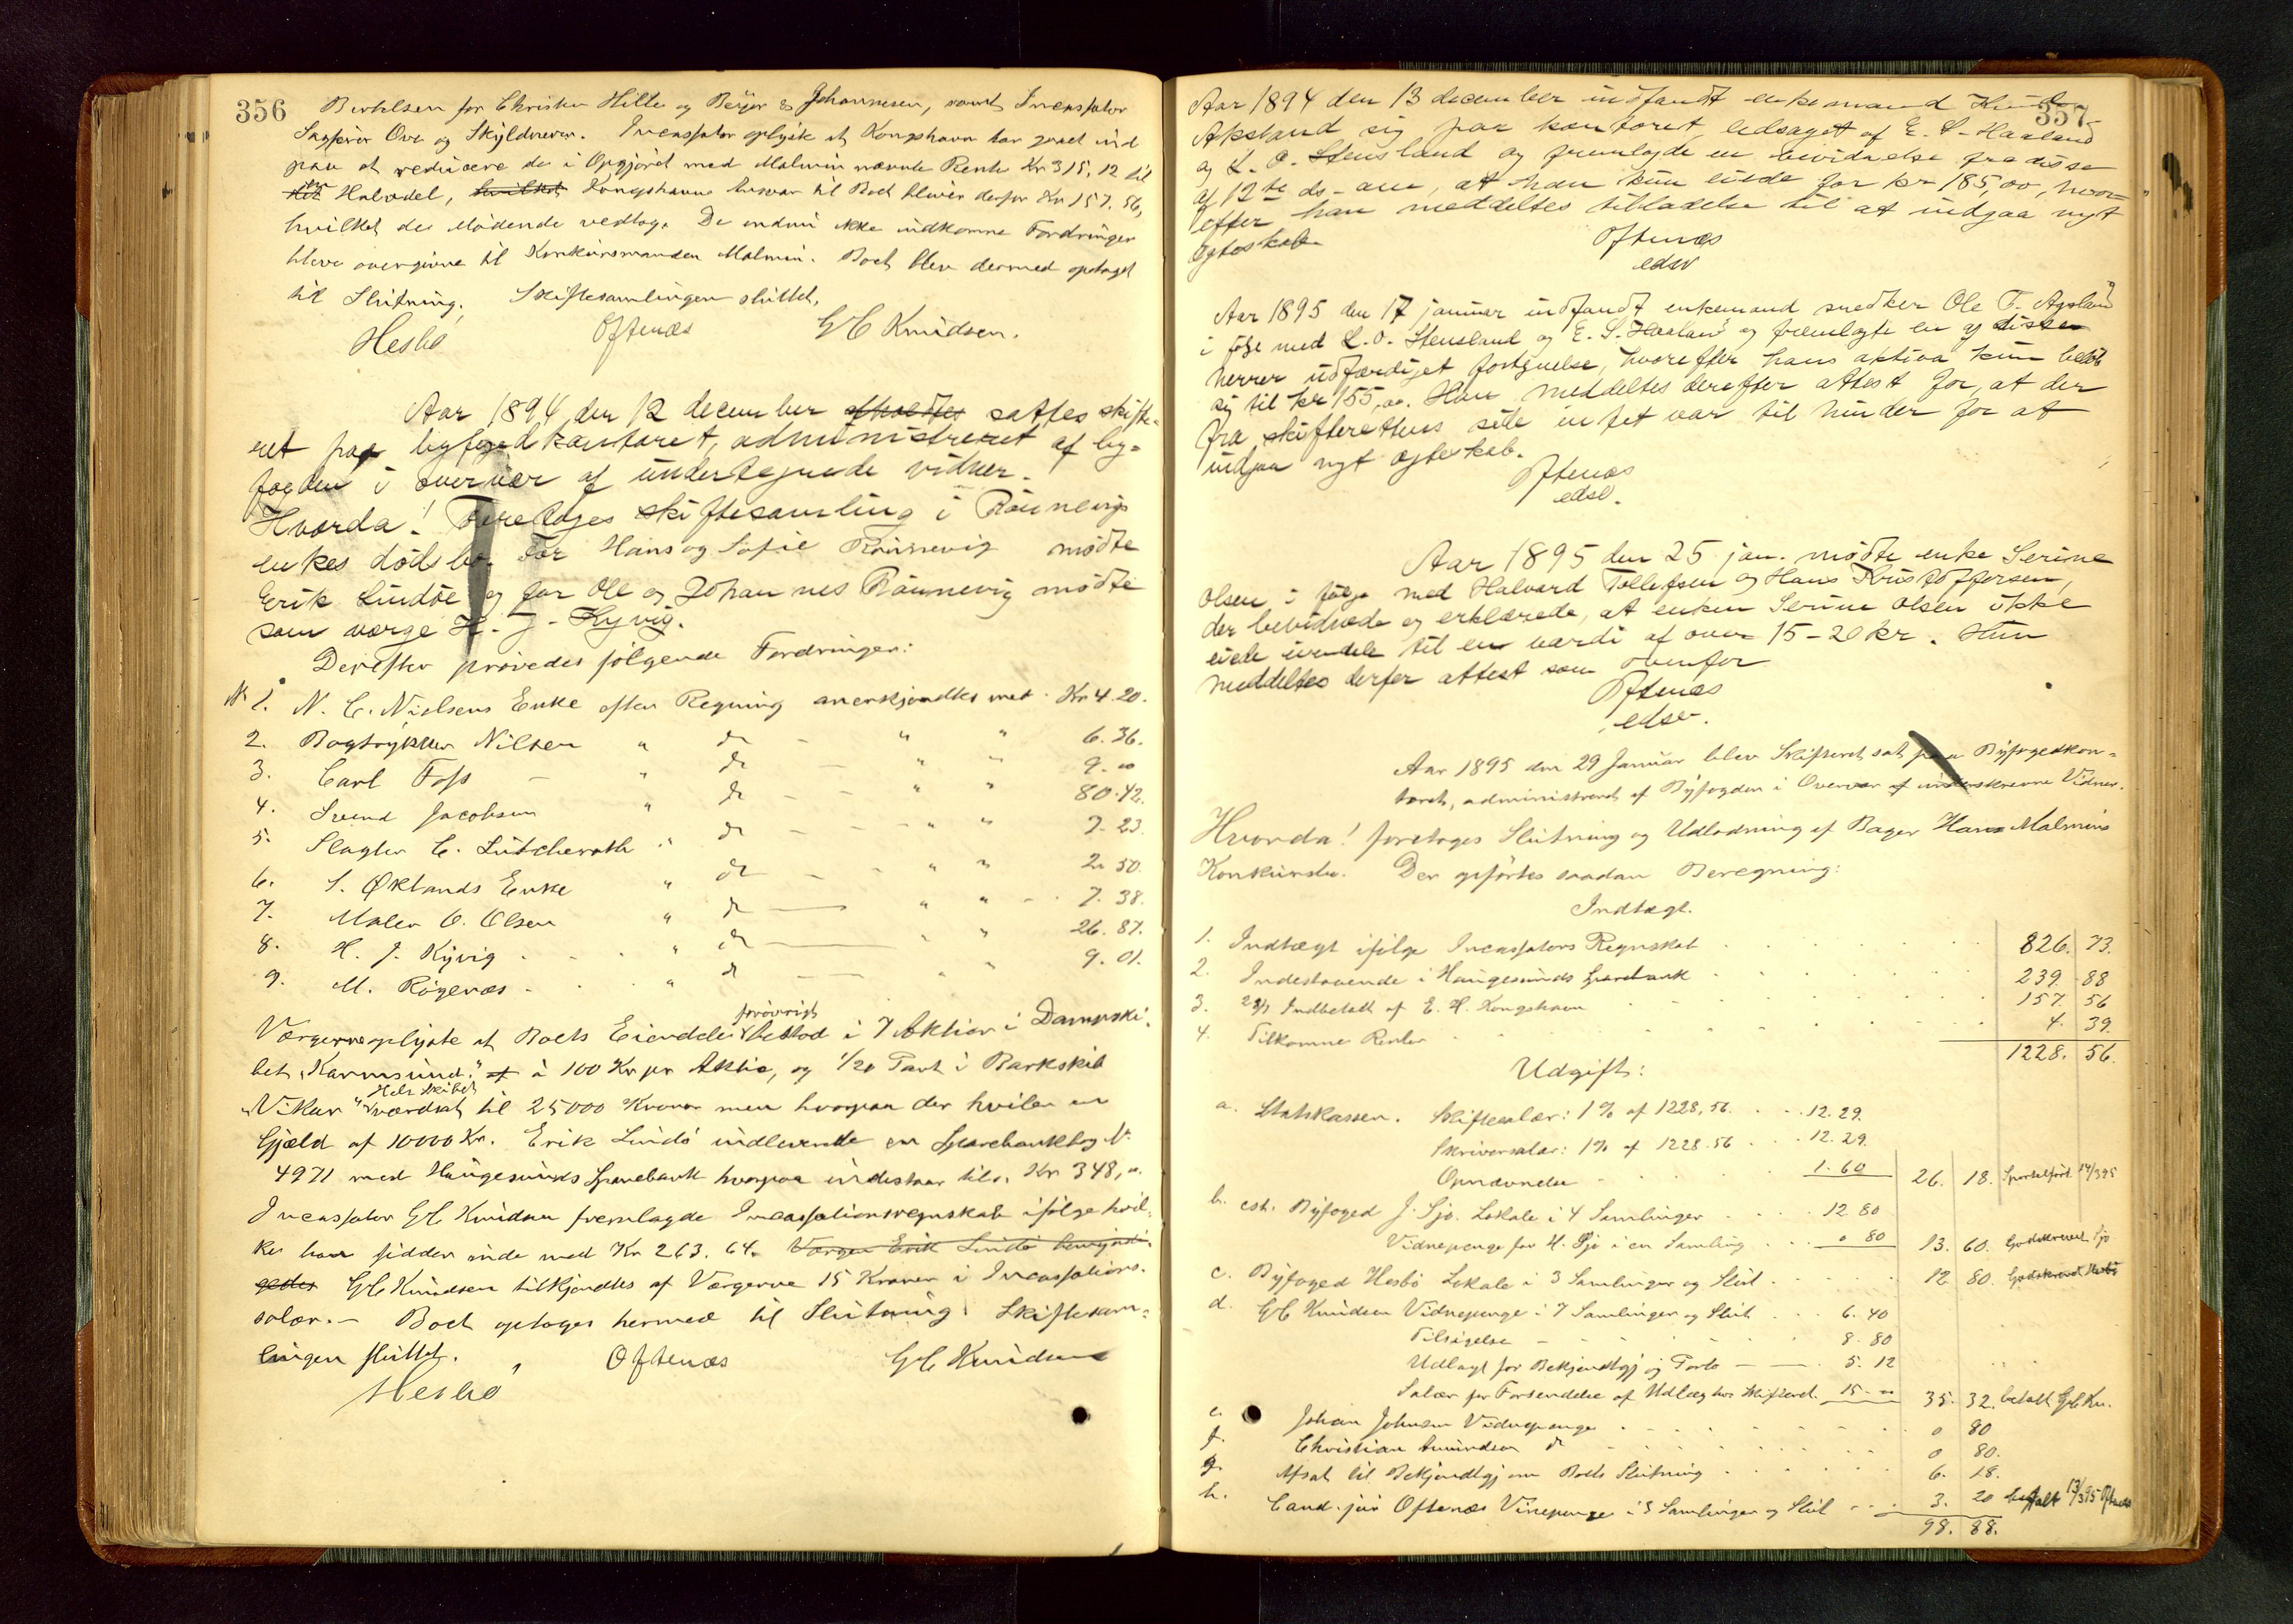 356
Berthelsen for Christen Hille og Beyer & Johannesen, samt Incassator
Sagfører Ove og Skyldneren. Incassator oplyste at Kongshavn har gaaet ind
paa at reducere de i Opgjøret med Malmin nævnte Renter Kr 315,12 til
Halvdel, hvilket Kongshavns Ansvar til Boet bliver derfor Kr 157.56,
hvilket de Mødende vedtog. De endnu ikke indkomne Fordringer
bleve overgivne til Konkursmanden Malmin. Boet blev dermed optaget
til Slutning. Skiftesamlingen sluttet.
Hesbø Oftenæs G C Knudsen.
Aar 1894 den 12 december afholdtes sattes skifte-
ret paa byfogedkontoret, administreret af by-
fogden i overvær af undertegnede vidner.
Hvorda! Foretoges skiftesamling i Rønnevigs
enkes dødsbo. For Hans og Sofie Rønnevig mødte
Erik Lindøe og for Ole og Johannes Rønnevig mødte
som værge H. J. Kyvig.
Derefter prøvedes følgende Fordringer:
No 1. N. C. Nielsens Enke efter Regning anerkjendtes med Kr 4.20.
2. Bogtrykker Nilsen " do - " " 6.36.
3. Carl Foss - " do - " " 9.00
4. Svend Jacobsen " do - - " " 80.42.
5. Slagter C. Lütcherath " do - - " " 7.23.
6. S. Øklands Enke " do - - " " 2.50.
7. Maler O. Olsen " do - " " 7.38.
8. H. J. Kyvig " do - " " 26.87.
9. M. Røgenæs " do - " " 9.01.
forøvrigt
Værgerne oplyste at Boets Eiendele bestod i 7 Aktier i Dampski-
bet "Karmsund" af à 100 Kr pr Aktie, og 1/20 Part i Barkskib
Hele Skibet
"Vikar" værdsat til 25000 Kroner men hvorpaa der hviler en
Gjæld af 10000 Kr. Erik Lindø indleverede en Sparebankbog No
4971 med Haugesunds Sparebank hvorpaa indestaar tils. Kr 348,00.
Incassator G C Knudsen fremlagde Incassationsregnskab ifølge hvil-
ket han sidder inde med Kr 263.64. Værgen Erik Lindø bemyndi-
gedes G C Knudsen tilkjendtes af Værgerne 15 Kroner i Incassations-
salær. - Boet optages hermed til Slutning. Skiftesam-
lingen sluttet.
Hesbø Oftenæs G C Knudsen
357
Aar 1894 den 13 december indfandt enkemand
Aksland sig paa kontoret, ledsaget af E. S. Haaland
og L. O. Stensland og fremlagde en bevidnelse fra disse
af 12te ds. om, at han kun eiede for kr 185,00, hvor-
efter han meddeltes tilladelse til at indgaa nyt
egteskab.
Oftenæs
edsv
Aar 1895 den 17 januar indfandt enkemand snedker Ole T. Apsland
i følge med L. O. Stensland og E. S. Haaland og fremlagte en af disse
herrer udfærdiget fortegnelse, hvorefter hans aktiva kun beløb
sig til kr 155,00. Han meddeltes derefter attest for, at der
fra skifterettens side intet var til hinder for at
indgaa nyt egteskab.
Oftenæs
edsv.
Aar 1895 den 25 jan. mødte enke Serine
Olsen i følge med Halvard Tollefsen og Hans Kristoffersen,
der bevidnede og erklærede, at enken Serine Olsen ikke
eiede eiendele til en værdi af over 15-20 kr. Hun
meddeltes derfor attest som ovenfor
Oftenæs
edsv.
Aar 1895 den 29 Januar blev Skifteret sat paa Byfogedkon-
toret, administreret af Byfogden i Overvær af underskrevne Vidner.
Hvorda! foretoges Slutning og Udlodning af Bager Hans Malmins
Konkursbo. Der opførtes saadan Beregning:
Indtægt.
1. Indtægt ifølge Incassators Regnskab 826. 73.
2. Indestaaende i Haugesunds Sparebank 239. 88
3. 29/1 Indbetalt af E. H. Kongshavn 157. 56
4. Tilkomne Renter 4. 39.
1228. 56.
Udgift:
a. Statskassen. Skiftesalær: 1% af 1228,56 12.29.
Skriversalær: 1% af 1228.56 12.29.
Opnævnelse 1.60 26. 18. Sportelført 14/3 95
b. cst. Byfoged J. Sjo. Lokale i 4 Samlinger 12 80
Vidnepenge for H. Sjo i en Samling 0 80 13. 60. Godskrevet Sjo
c. Byfoged Hesbø Lokale i 3 Samlinger og Slut 12 80. Godskrevet Hesbø
d. G C Knudsen Vidnepenge i 7 Samlinger og Slut 6.40
Tilsigelse 8.80
Udlagt for Bekjendtgj og Porto 5.12
Salær for Forsendelse af Udlæg hos Skifteret. 15.00 35. 32. betalt G C Kn.
e. Johan Johnsen Vidnepenge 0 80
f. Christian Amundsen do 0 80.
g. Afsat til Bekjendtgj om Boets Slutning 6. 18.
h. Cand. jur Oftenæs Vinepenge i 3 Samlinger og Slut 3. 20 betalt 13/3 95 Oftenæs
98. 88.